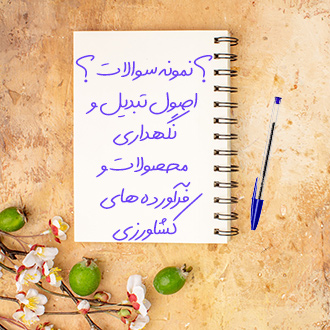 ؟ نمونه سوالات ؟
اصول تبدیل و
نگهداری
محصولات و
فرآورده های
کشاورزی